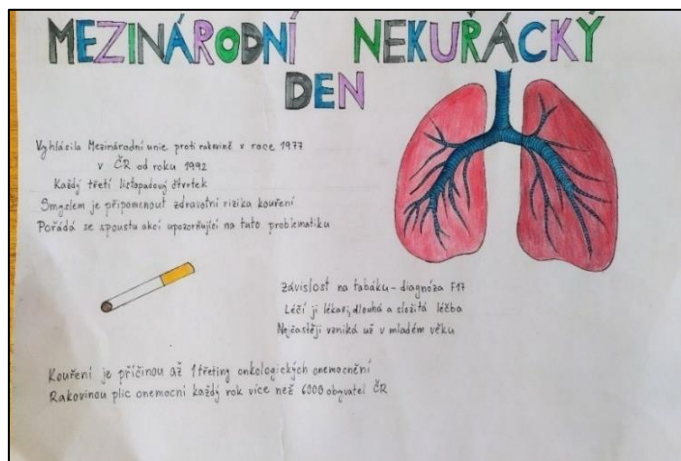 MEZINÁRODNÍ NEKUŘÁCKÝ
DEN
Vyhlásila Mezinárodní unie proti rakovině v roce 1977
v ČR od roku 1992
Každý třetí listopadový čtvrtek
Smyslem je připomenout zdravotní rizika kouření
Pořádá se spoustu akcí upozorňující na tuto problematiku
závislost na tabáku - diagnóza F17
Léčí ji lékaři, dlouhá a složitá léčba
Nejčastěji vzniká už v mladém věku
Kouření je příčinou až 1 třetiny onkologických onemocnění
Rakovinou plic onemocní každý rok více než 6000 obyvatel ČR